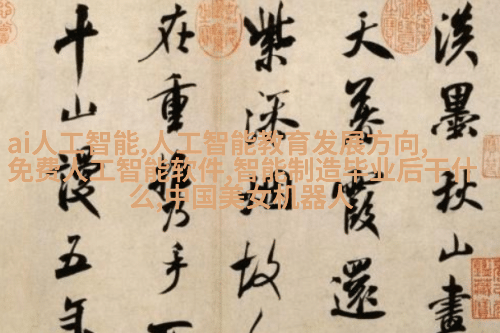 淡墨秋山畫
天暮霞還
紫添烟故
在重攜手不
平山謾五年
ai人工智能,人工智能教育发展方向,
免费人工智能软件,智能制造毕业后干什
么,中国美女机器人